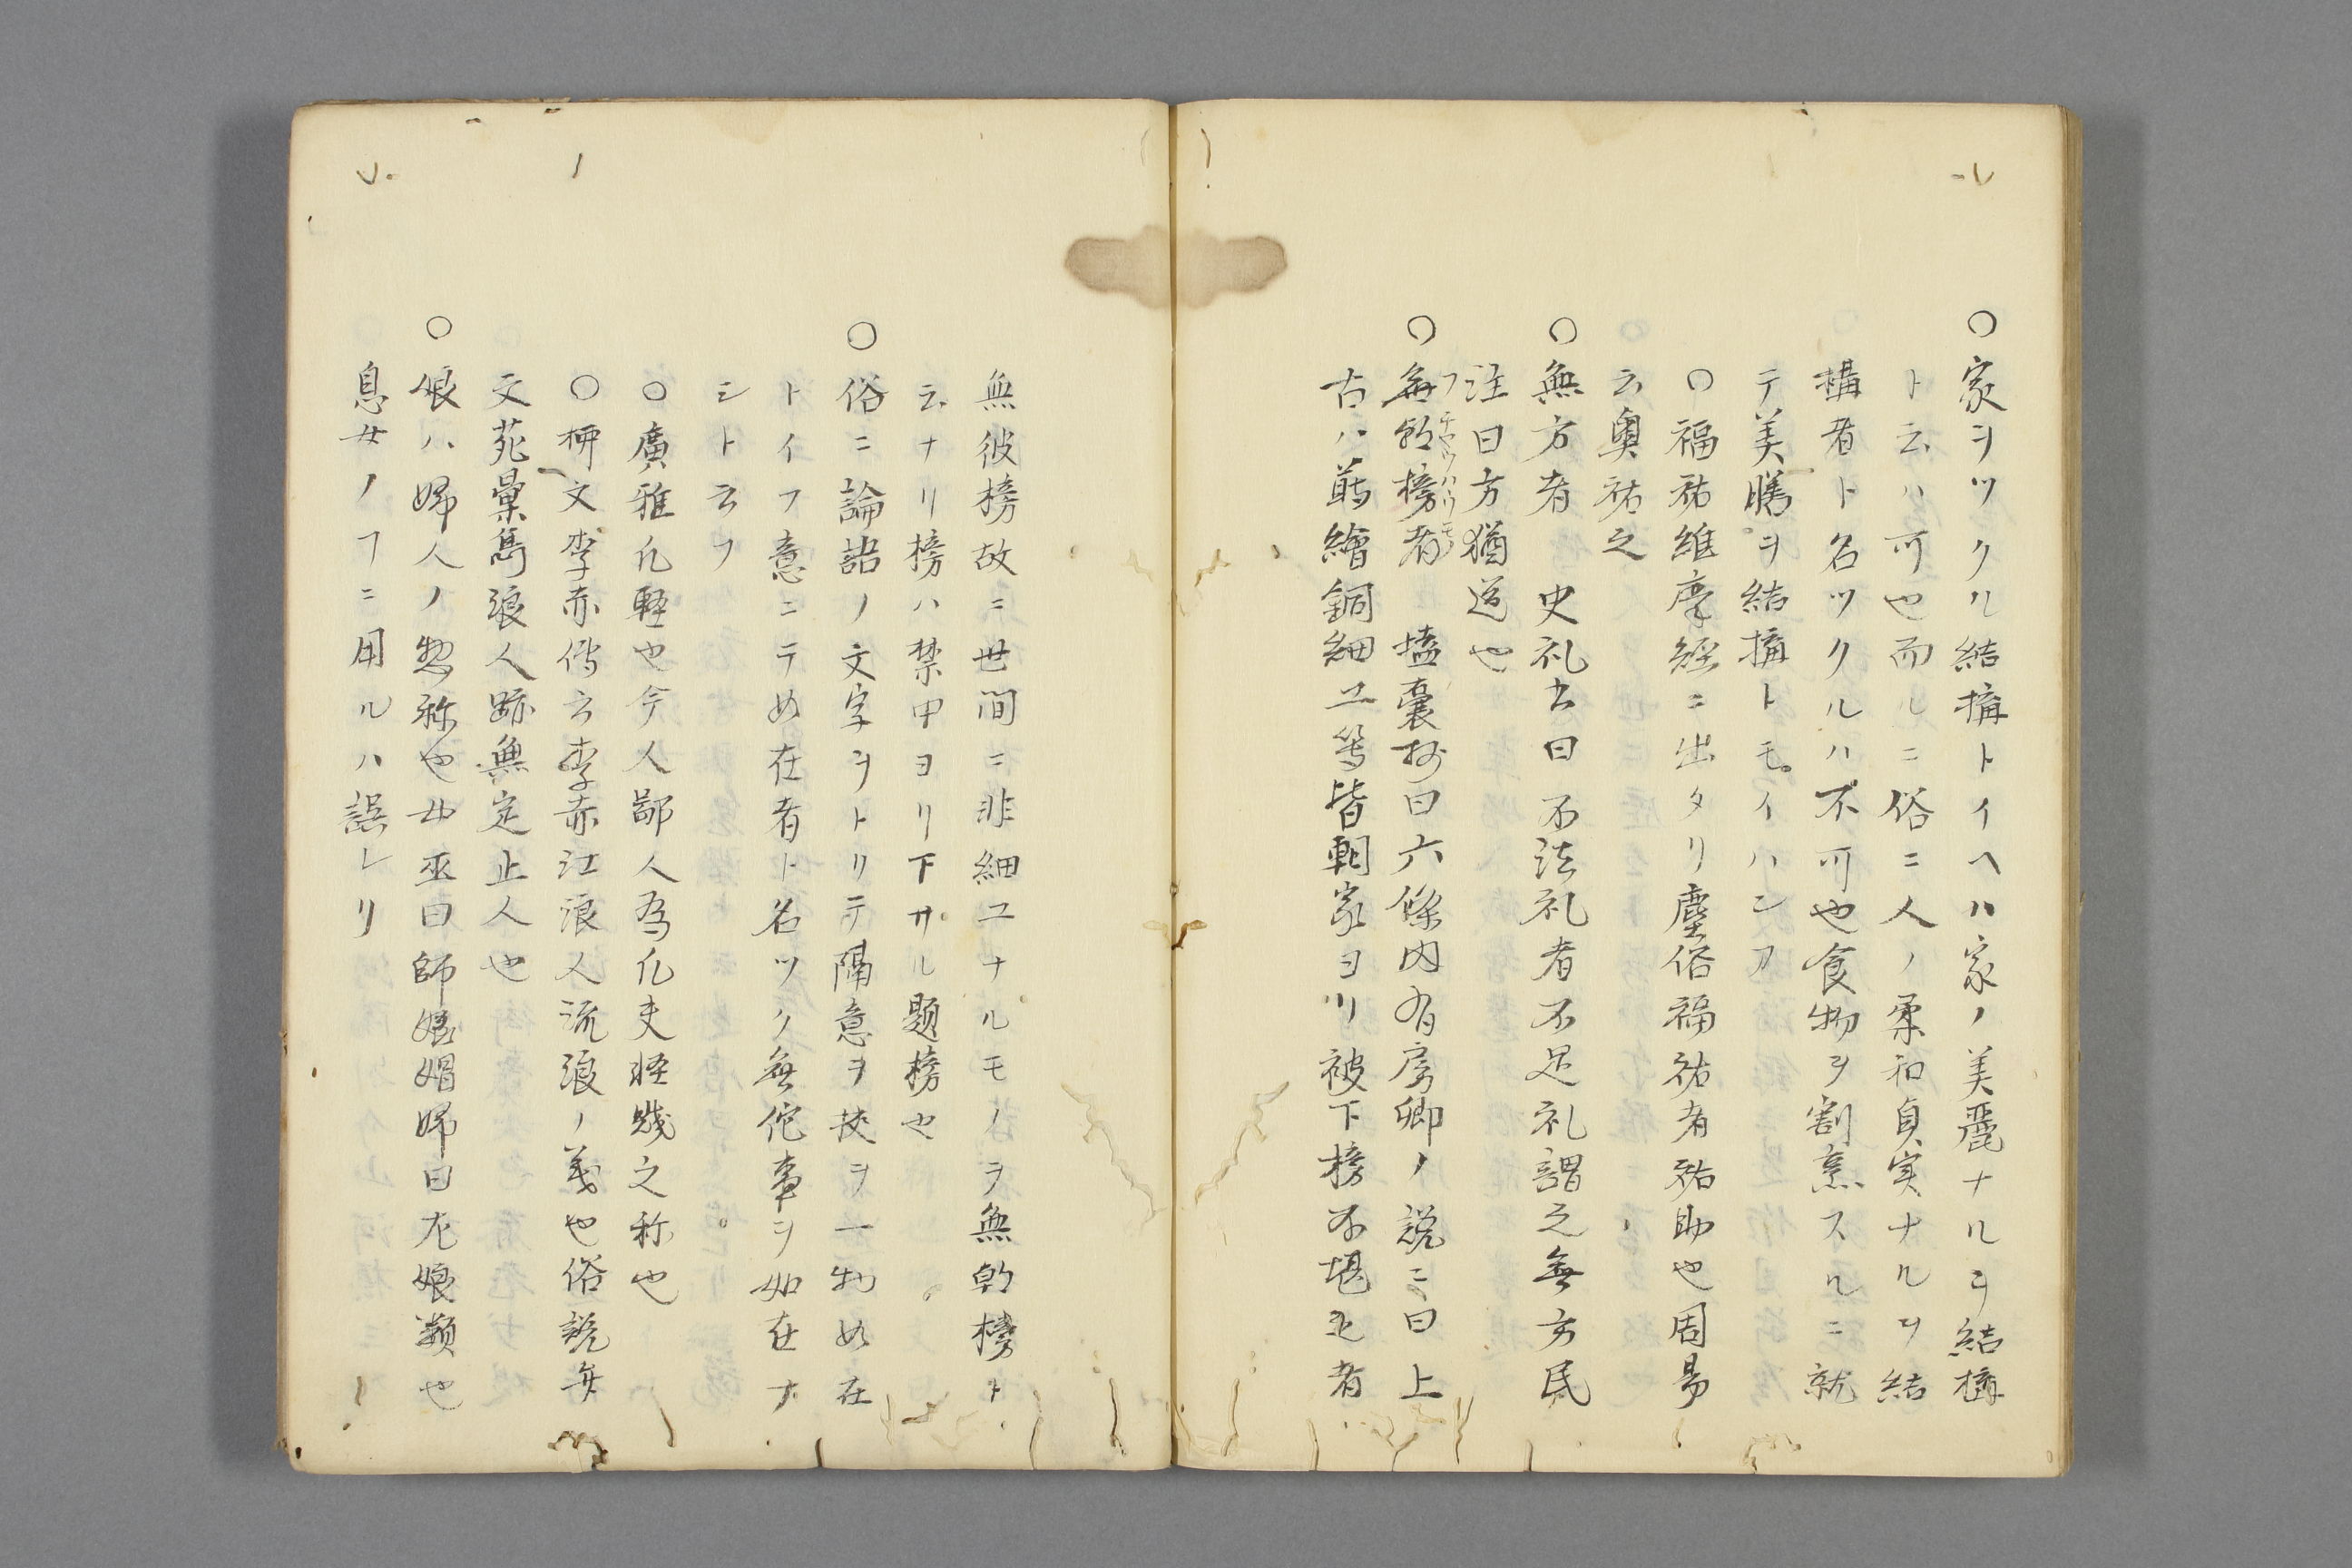 ○家ヲツクル結搆トイヘハ家ノ美麗ナルヲ結搆
ト云ハ可也而ルニ俗ニ人ノ柔和貞実ナルヲ結
搆者ト名ツクルハ不可也食物ヲ割烹スルニ就
テ美膳ヲ結搆トモイハンカ
○福祐維摩経ニ出タリ塵俗福祐者祐助也周易
云奥祐之
○無方者 史礼書曰不法礼者不足礼謂之無方民
注曰方猶道也
○無 榜者 壒嚢抄曰六條内府有房卿ノ説ニ曰上
古ハ蒔繪銅細工等皆朝家ヨリ被下榜不堪之者
無彼榜故ニ世間ニ非細工ナルモノヲ無 榜ト
云ナリ榜ハ禁中ヨリ下サル題榜也
○俗ニ論語ノ文字ヲトリテ隔意ヲ挟ヲ一物如在
トイフ意ニテ如在者ト名ツク無佗事ヲ如在ナ
シト云フ
○廣雅凢軽也今人鄙人為凢夫軽賤之称也
○柳文李赤傳云李赤江浪人流浪ノ義也俗説弁
文苑彙雋浪人跡無定止人也
○娘ハ婦人ノ惣称也女巫曰師娘娼婦曰尤娘類也
息女ノ フニ用ルハ誤レリ